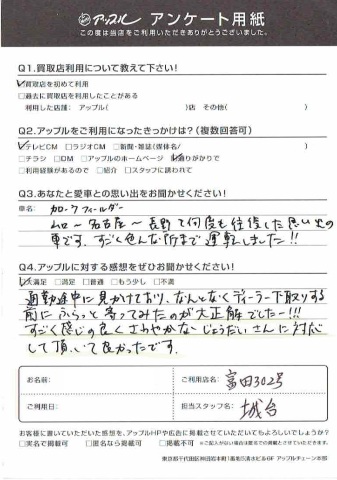 アップル アンケート用紙
この度は当店をご利用いただきありがとうございました。
Q1.買取店利用について教えて下さい!
☑買取店を初めて利用
□過去に買取店を利用したことがある
利用した店舗: アップル( )店 その他( )
Q2.アップルをご利用になったきっかけは?(複数回答可)
☑テレビCM □ラジオCM □新聞・雑誌(媒体名 )
□チラシ □DM □アップルのホームページ ☑通りがかりで
□利用経験があるので □紹介 □スタッフに誘われて
Q3.あなたと愛車との思い出をお聞かせください!
車名:
カローラフィールダー
〜名古屋〜長野て何度も往復した思い出の
車です。すごく色んな所まで運転しました!!
Q4.アップルに対する感想をぜひお聞かせください!
☑大満足 □満足 □普通 □もう少し □不満
通勤途中に見かけており、なんとなくディーラー下取りする
前にふらっと寄ってみたのが大正解でしたー!!!
すごく感じの良くさわやかなじょうだいさんに対応
して頂いて良かったです。
お名前:
ご利用店名:
富田302号
ご利用日:
担当スタッフ名:
城台
お客様に書いていただいた感想を、アップルHPや広告に掲載させていただいてもよろしいでしょうか?
□実名で掲載可 □匿名なら掲載可 □掲載不可 ※ご記入がない場合は匿名での掲載とさせていただきます。